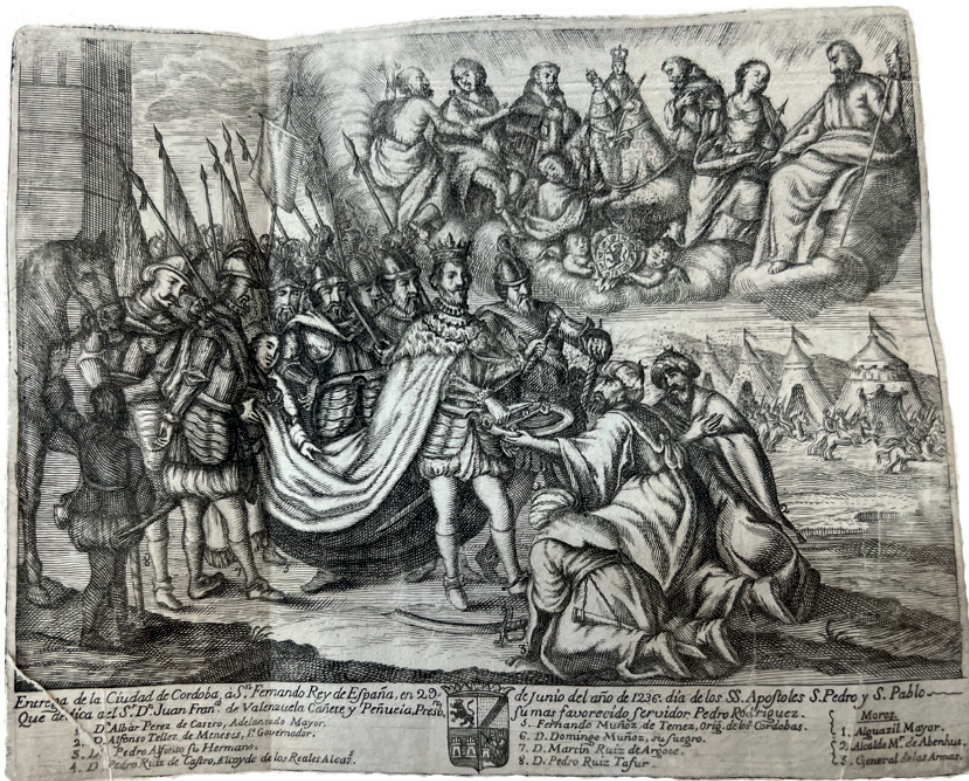 Entrega de la Ciudad de Cordoba, a S.ⁿ Fernando Rey de España, en 29 de Junio del año de 1236. dia de los SS. Apostoles S. Pedro y S. Pablo
Que dedica al S.ʳ D.ⁿ Juan Fran.ᶜᵒ de Valenzuela Cañete y Peñuela, su mas favorecido servidor Pedro Rodriguez.
1. D. Albar Perez de Castro, Adelantado Mayor.
2. D. Alfonso Tellez de Meneses, 1.º Governador.
3. D.ⁿ Pedro Alfonso su Hermano.
4. D. Pedro Ruiz de Castro, Alcayde de los Reales
5. Fernando Muñoz de Temez, Orig. de los Cordobas.
6. D. Domingo Muñoz, su suegro.
7. D. Martin Ruiz de Argote.
8. D. Pedro Ruiz Tafur.
Moros.
1. Alguazil Mayor.
2. Alcalde M.ʳ de Abenhus.
3. General de las Armas.
8
3